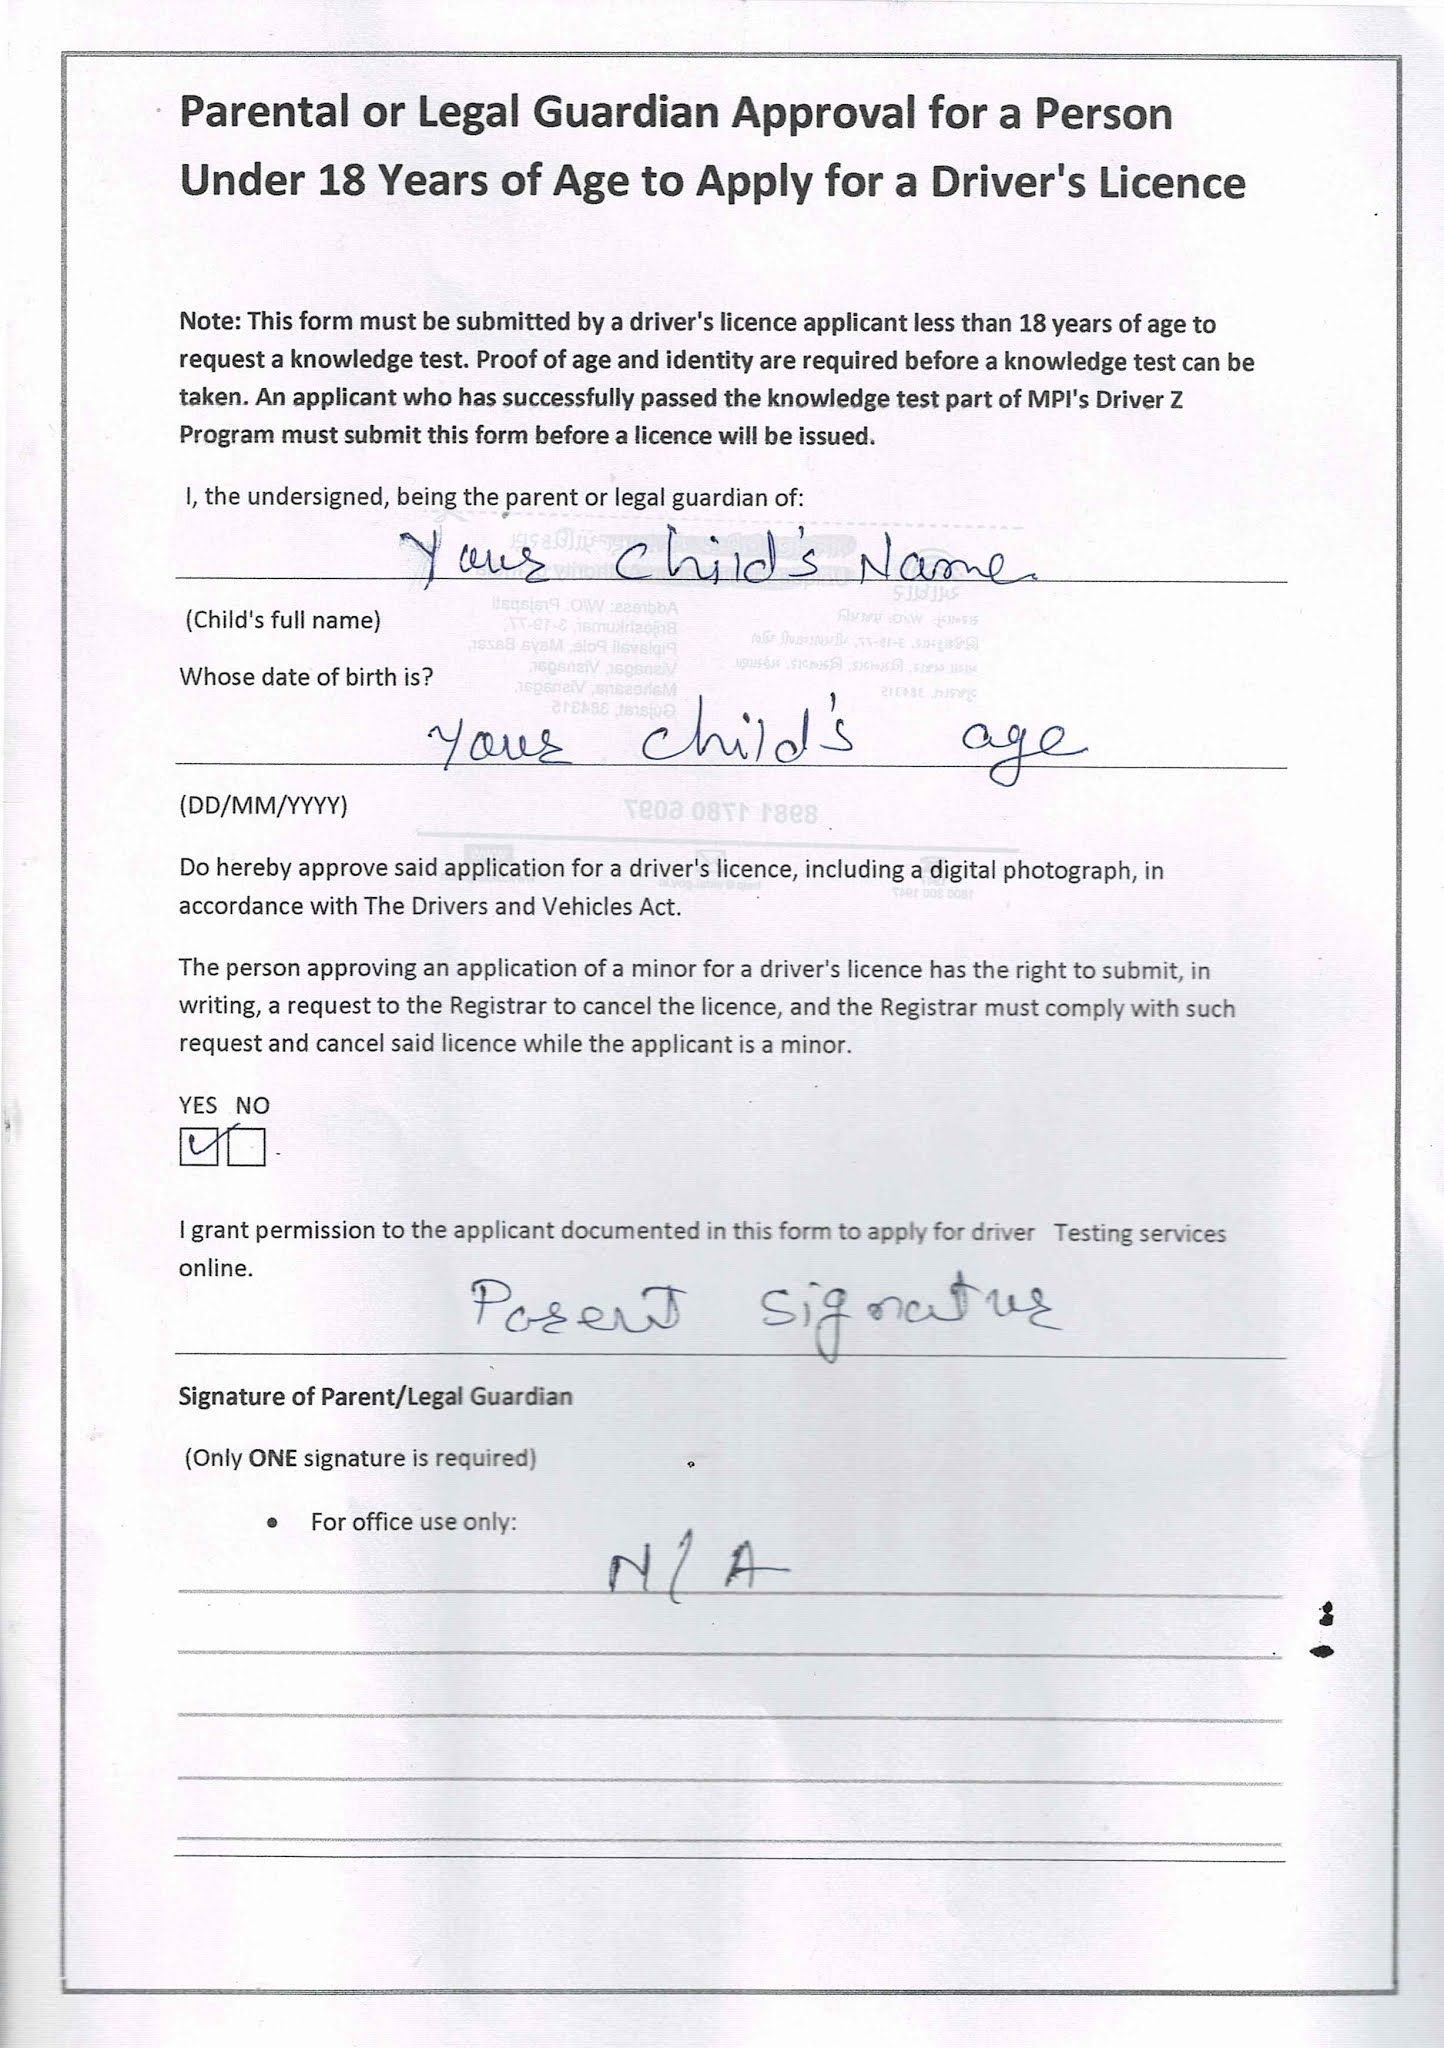 Parental or Legal Guardian Approval for a Person
Under 18 Years of Age to Apply for a Driver's Licence
Note: This form must be submitted by a driver's licence applicant less than 18 years of age to
request a knowledge test. Proof of age and identity are required before a knowledge test can be
taken. An applicant who has successfully passed the knowledge test part of MPI's Driver Z
Program must submit this form before a licence will be issued.
I, the undersigned, being the parent or legal guardian of:
Your Child's Name
(Child's full name)
Whose date of birth is?
Your child's age
(DD/MM/YYYY)
Do hereby approve said application for a driver's licence, including a digital photograph, in
accordance with The Drivers and Vehicles Act.
The person approving an application of a minor for a driver's licence has the right to submit, in
writing, a request to the Registrar to cancel the licence, and the Registrar must comply with such
request and cancel said licence while the applicant is a minor.
YES NO
I grant permission to the applicant documented in this form to apply for driver Testing services
online.
Parent Signature
Signature of Parent/Legal Guardian
(Only ONE signature is required)
• For office use only:
N/A